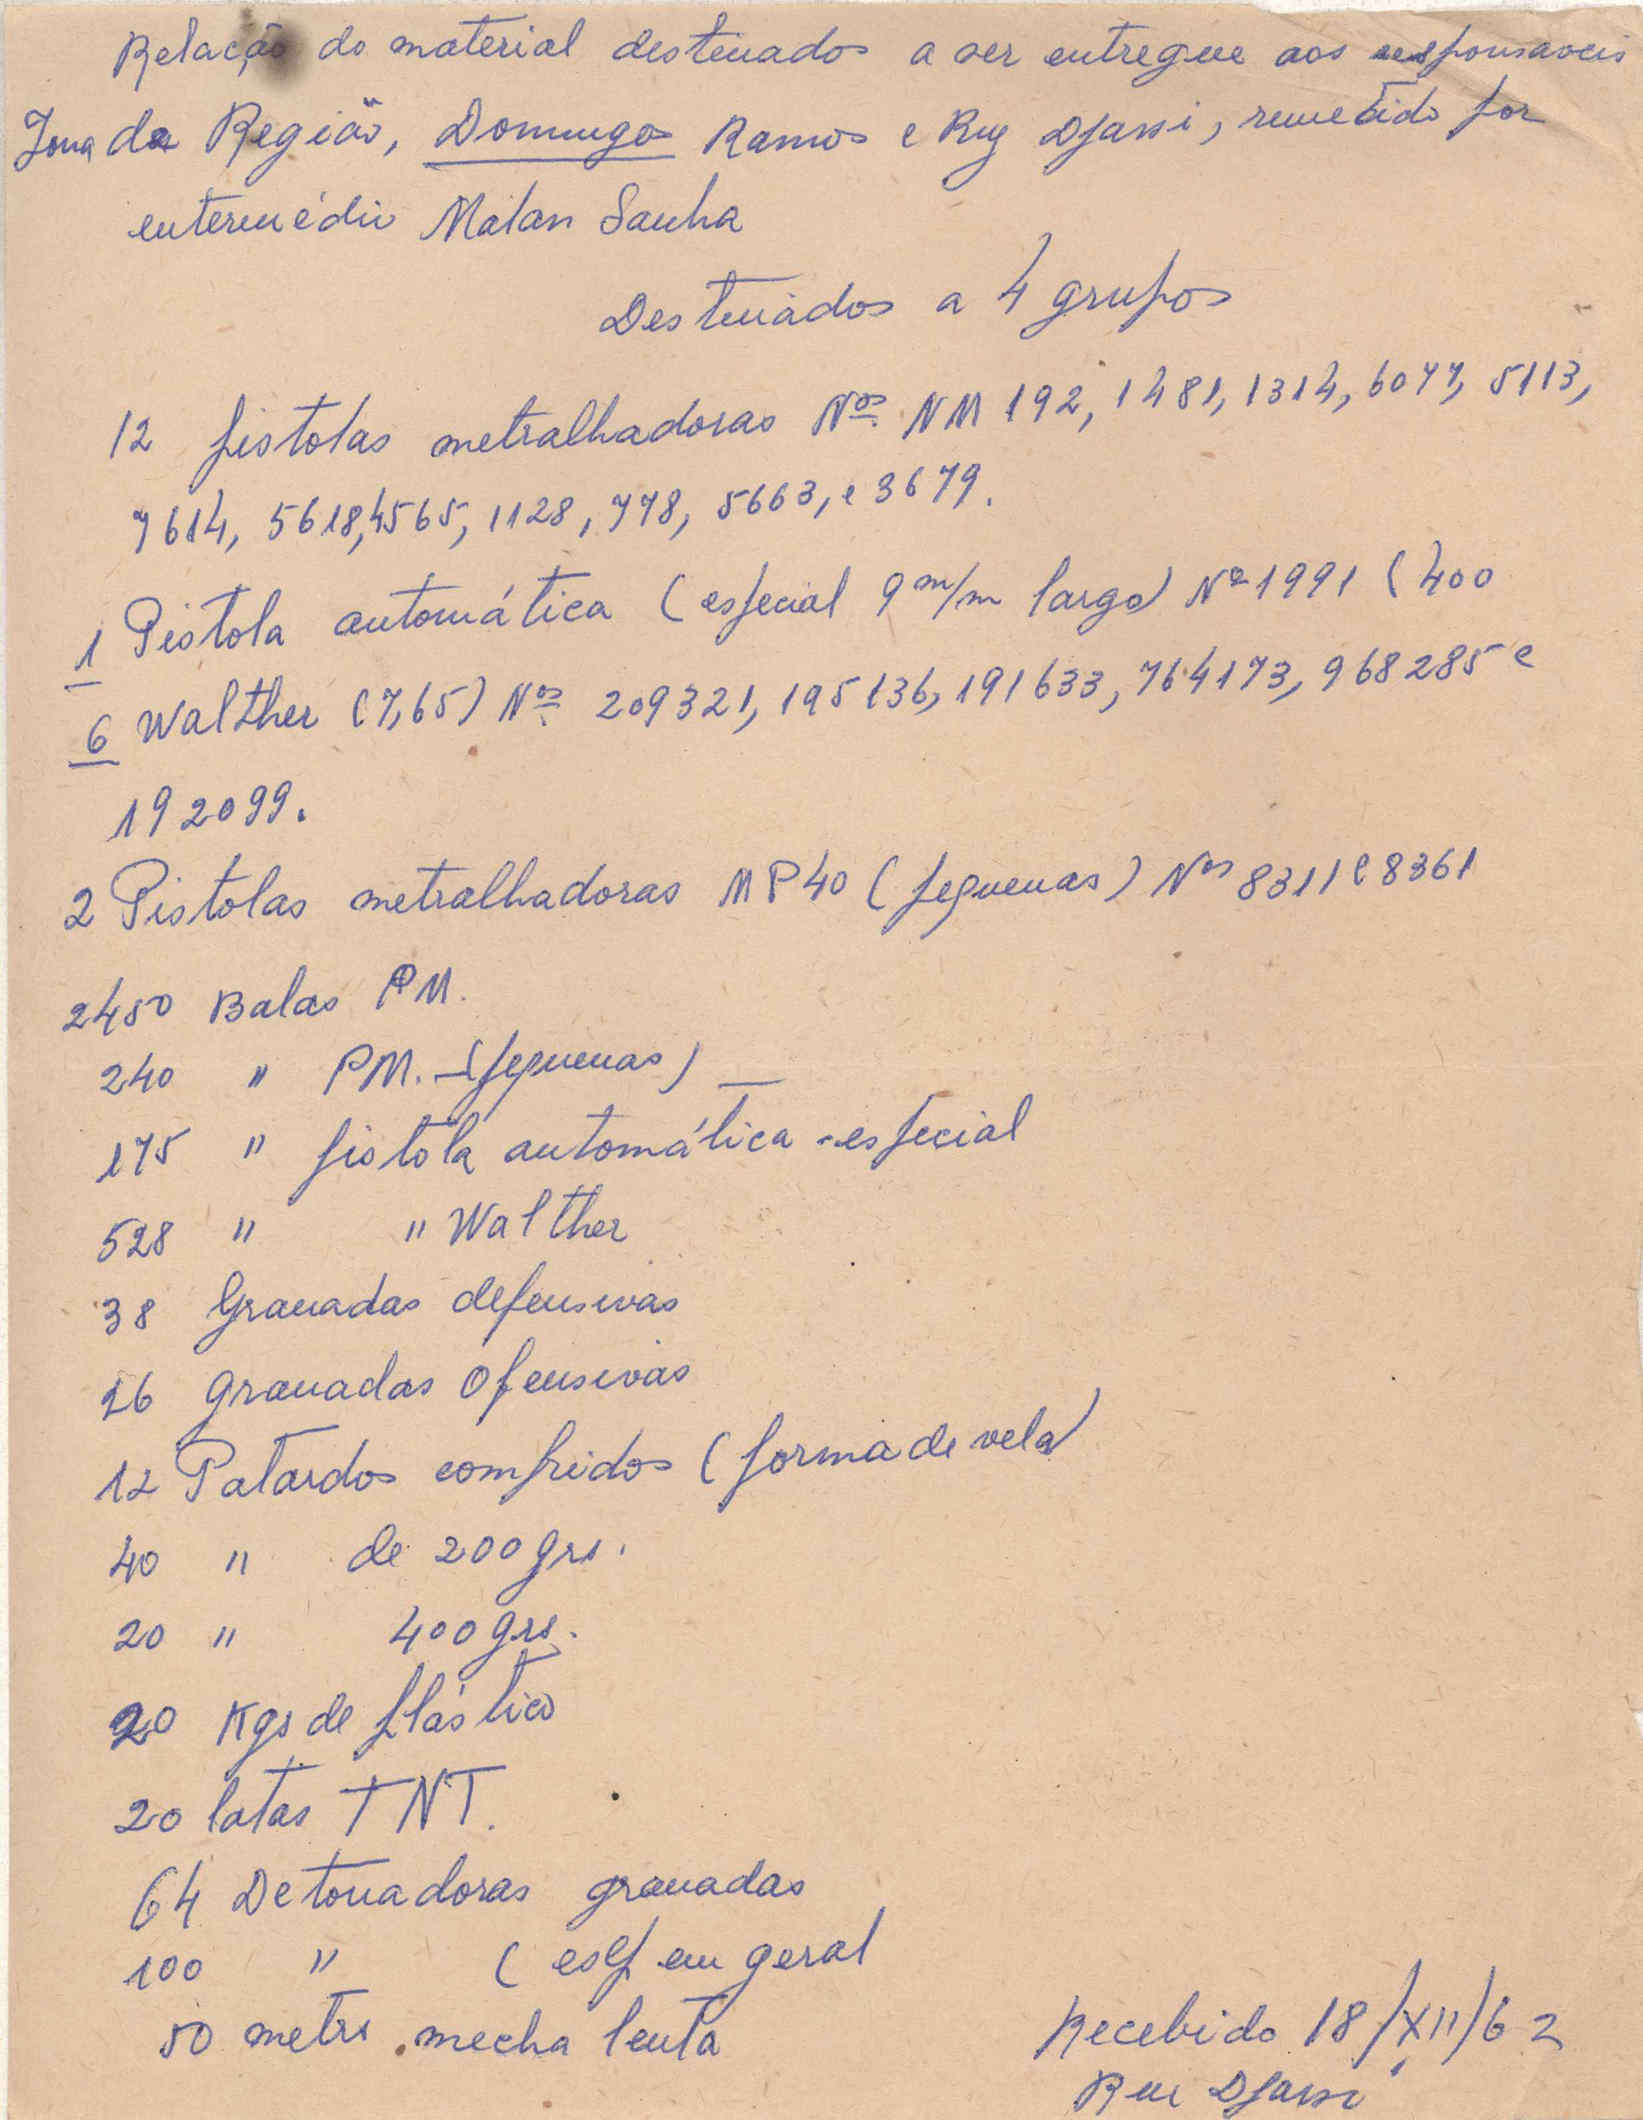 Relação do material destinados a ser entregue aos responsaveis
Zona da Região, Domingos Ramos e Ruy Djassi, remetido por
entermédio Malan Sanha
Destinados a 4 grupos
12 pistolas metralhadoras Nos. NM 192, 1481, 1314, 6077, 5113,
7614, 5618, 4565, 1128, 778, 5663, e 3679.
1 Pistola automática (especial 9 m/m largo) Nº 1991 (400
6 Walther (7,65) Nos. 209321, 195136, 191633, 764173, 968285 e
192099.
2 Pistolas metralhadoras MP40 (pequenas) Nos 8311 e 8361
2450 Balas PM.
240 " PM. - (pequenas) -
175 " pistola automática - especial
528 " " Walther
38 Granadas defensivas
26 granadas Ofensivas
12 Patardos compridos (forma de vela)
40 " de 200 grs.
20 " 400 grs.
20 Kgs de plástico
20 latas TNT.
64 Detonadoras granadas
100 " (esp em geral
50 metrs. mecha lenta
Recebido 18/XII/62
Rui Djassi